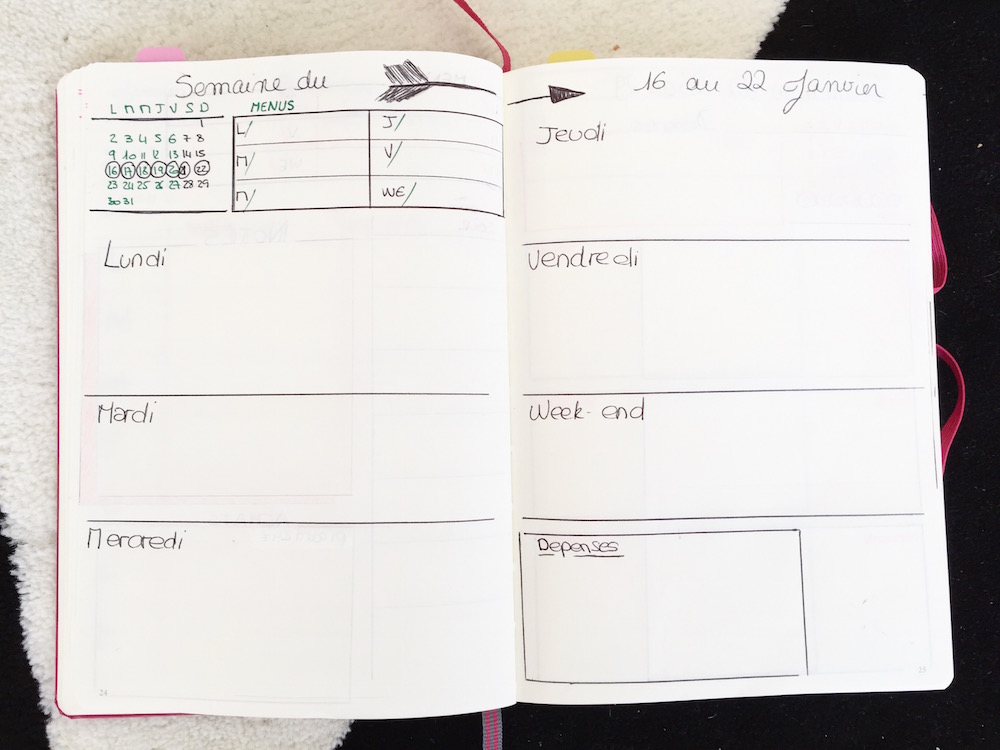 Semaine du
L M M J V S D
1
2 3 4 5 6 7 8
9 10 11 12 13 14 15
16 17 18 19 20 21 22
23 24 25 26 27 28 29
30 31
MENUS
L/
M/
M/
J/
V/
WE/
Lundi
Mardi
Mercredi
24
16 au 22 Janvier
Jeudi
Vendredi
Week-end
Depenses
25